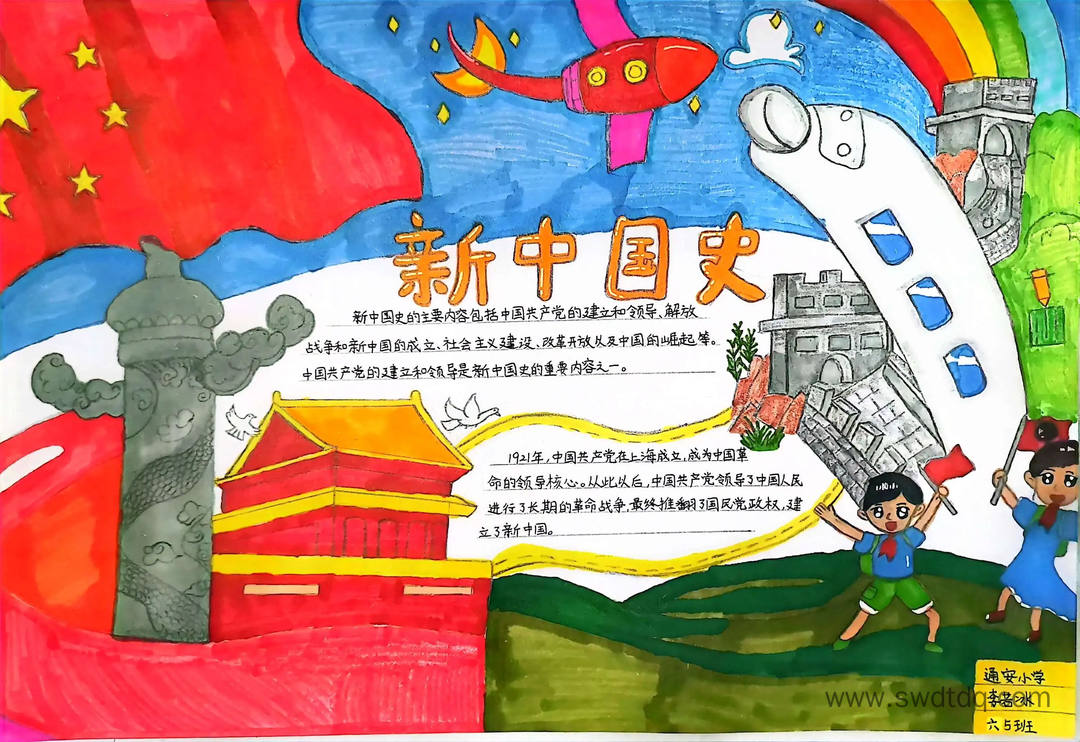 新中国史
新中国史的主要内容包括中国共产党的建立和领导、解放
战争和新中国的成立、社会主义建设、改革开放以及中国的崛起等。
中国共产党的建立和领导是新中国史的重要内容之一。
1921年,中国共产党在上海成立,成为中国革
命的领导核心。从此以后,中国共产党领导了中国人民
进行了长期的革命战争,最终推翻了国民党政权,建
立了新中国。
通安小学
六5班